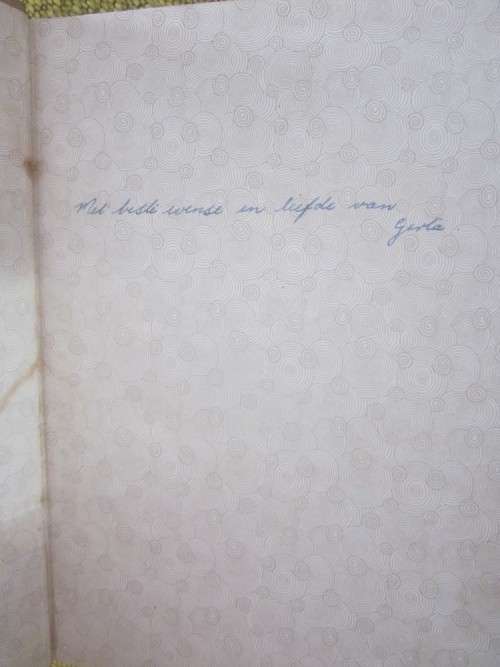 Met beste wense en liefde van
Gerta.